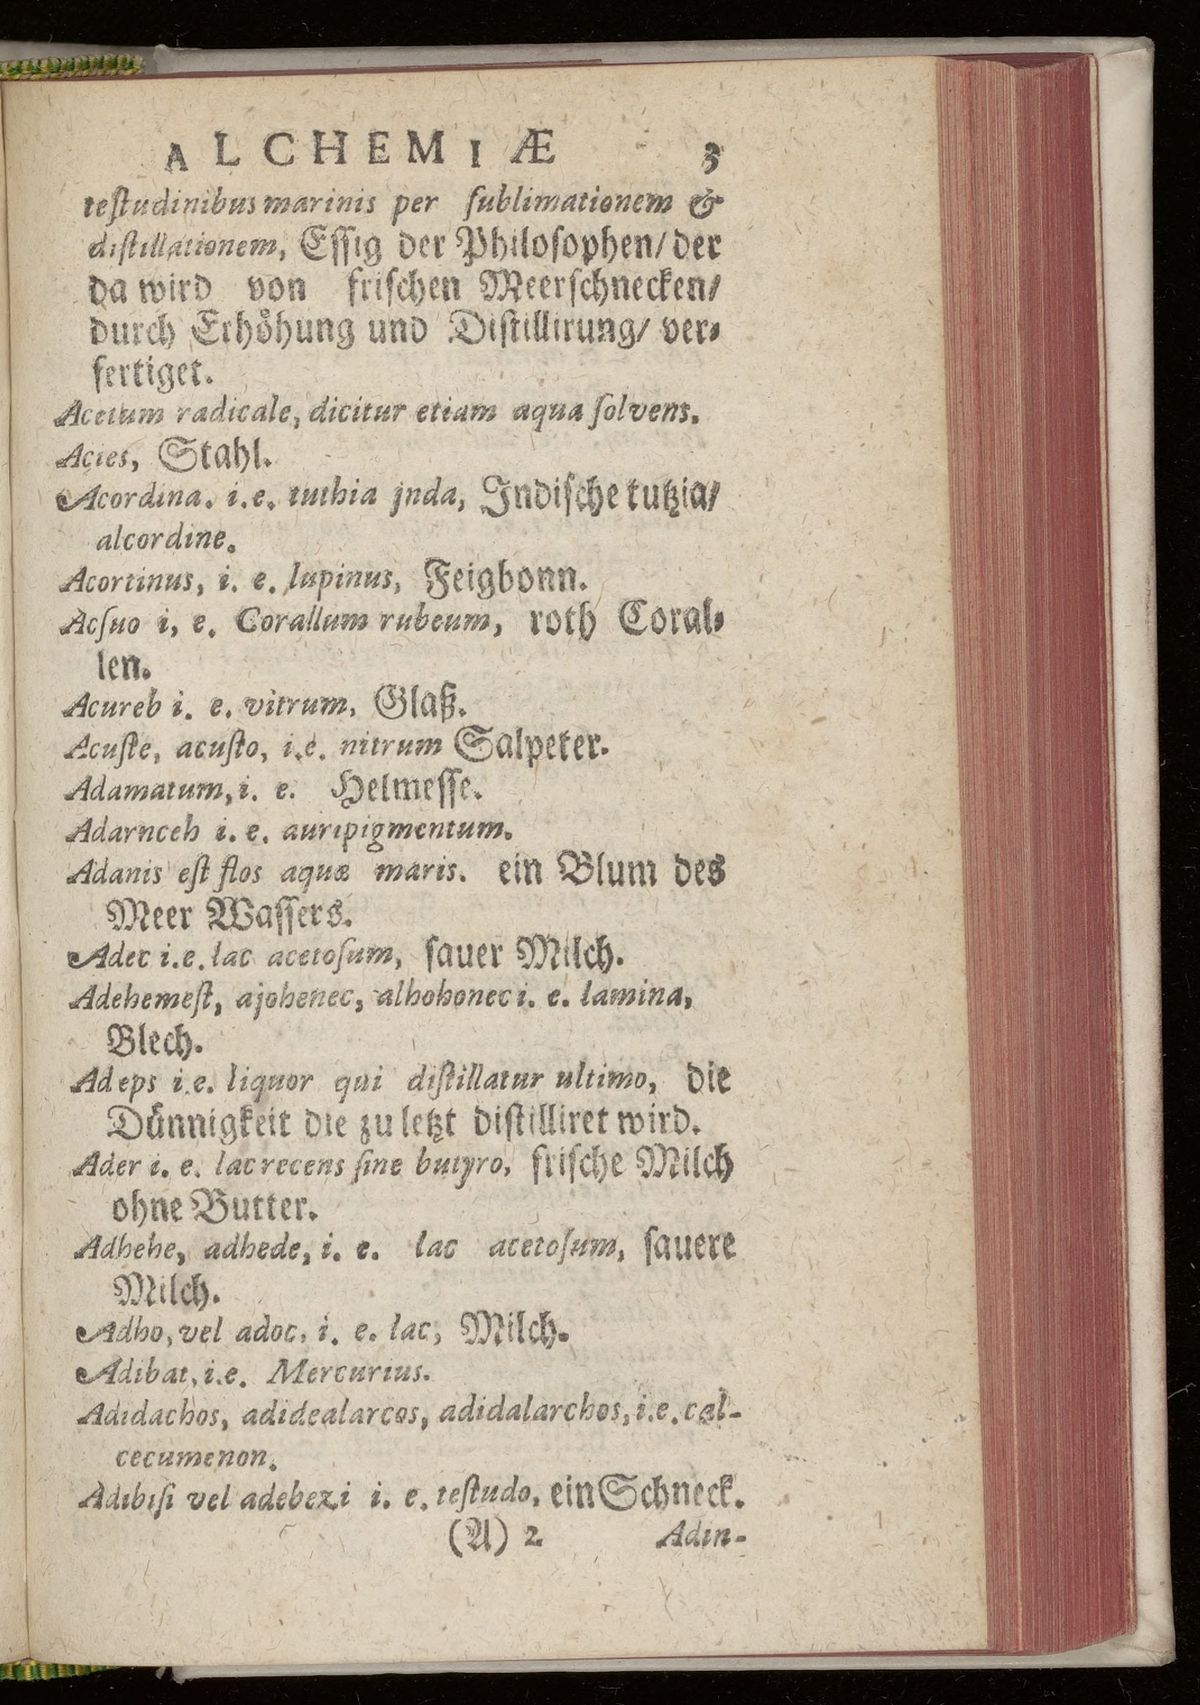 ALCHEMIÆ 3
teſtudinibus marinis per ſublimationem &
diſtillationem, Eſſig der Philoſophen/ der
da wird von friſchen Meerſchnecken/
durch Erhöhung und Diſtillirung/ ver-
fertiget.
Acetum radicale, dicitur etiam aqua ſolvens.
Acies, Stahl.
Acordina. i.e. tuthia jnda, Indiſche tutzia/
alcordine.
Acortinus, i. e. lupinus, Feigbonn.
Acſuo i, e. Corallum rubeum, roth Coral-
len.
Acureb i. e. vitrum, Glaß.
Acuſte, acuſto, i.e. nitrum Salpeter.
Adamatum, i. e. Helmeſſe.
Adarnceh i. e. auripigmentum.
Adanis eſt flos aquæ maris. ein Blum des
Meer Waſſers.
Adec i.e. lac acetoſum, ſauer Milch.
Adehemeſt, ajohenec, alhohonec i. e. lamina,
Blech.
Adeps i.e. liquor qui diſtillatur ultimo, die
Dünnigkeit die zu letzt diſtilliret wird.
Ader i. e. lac recens ſine butyro, friſche Milch
ohne Butter.
Adhehe, adhede, i. e. lac acetoſum, ſauere
Milch.
Adho, vel adoc, i. e. lac, Milch.
Adibat, i.e. Mercurius.
Adidachos, adidealarcos, adidalarchos, i.e. cal-
cecumenon.
Adibiſi vel adebezi i. e. teſtudo, ein Schneck.
(A) 2 Adin-